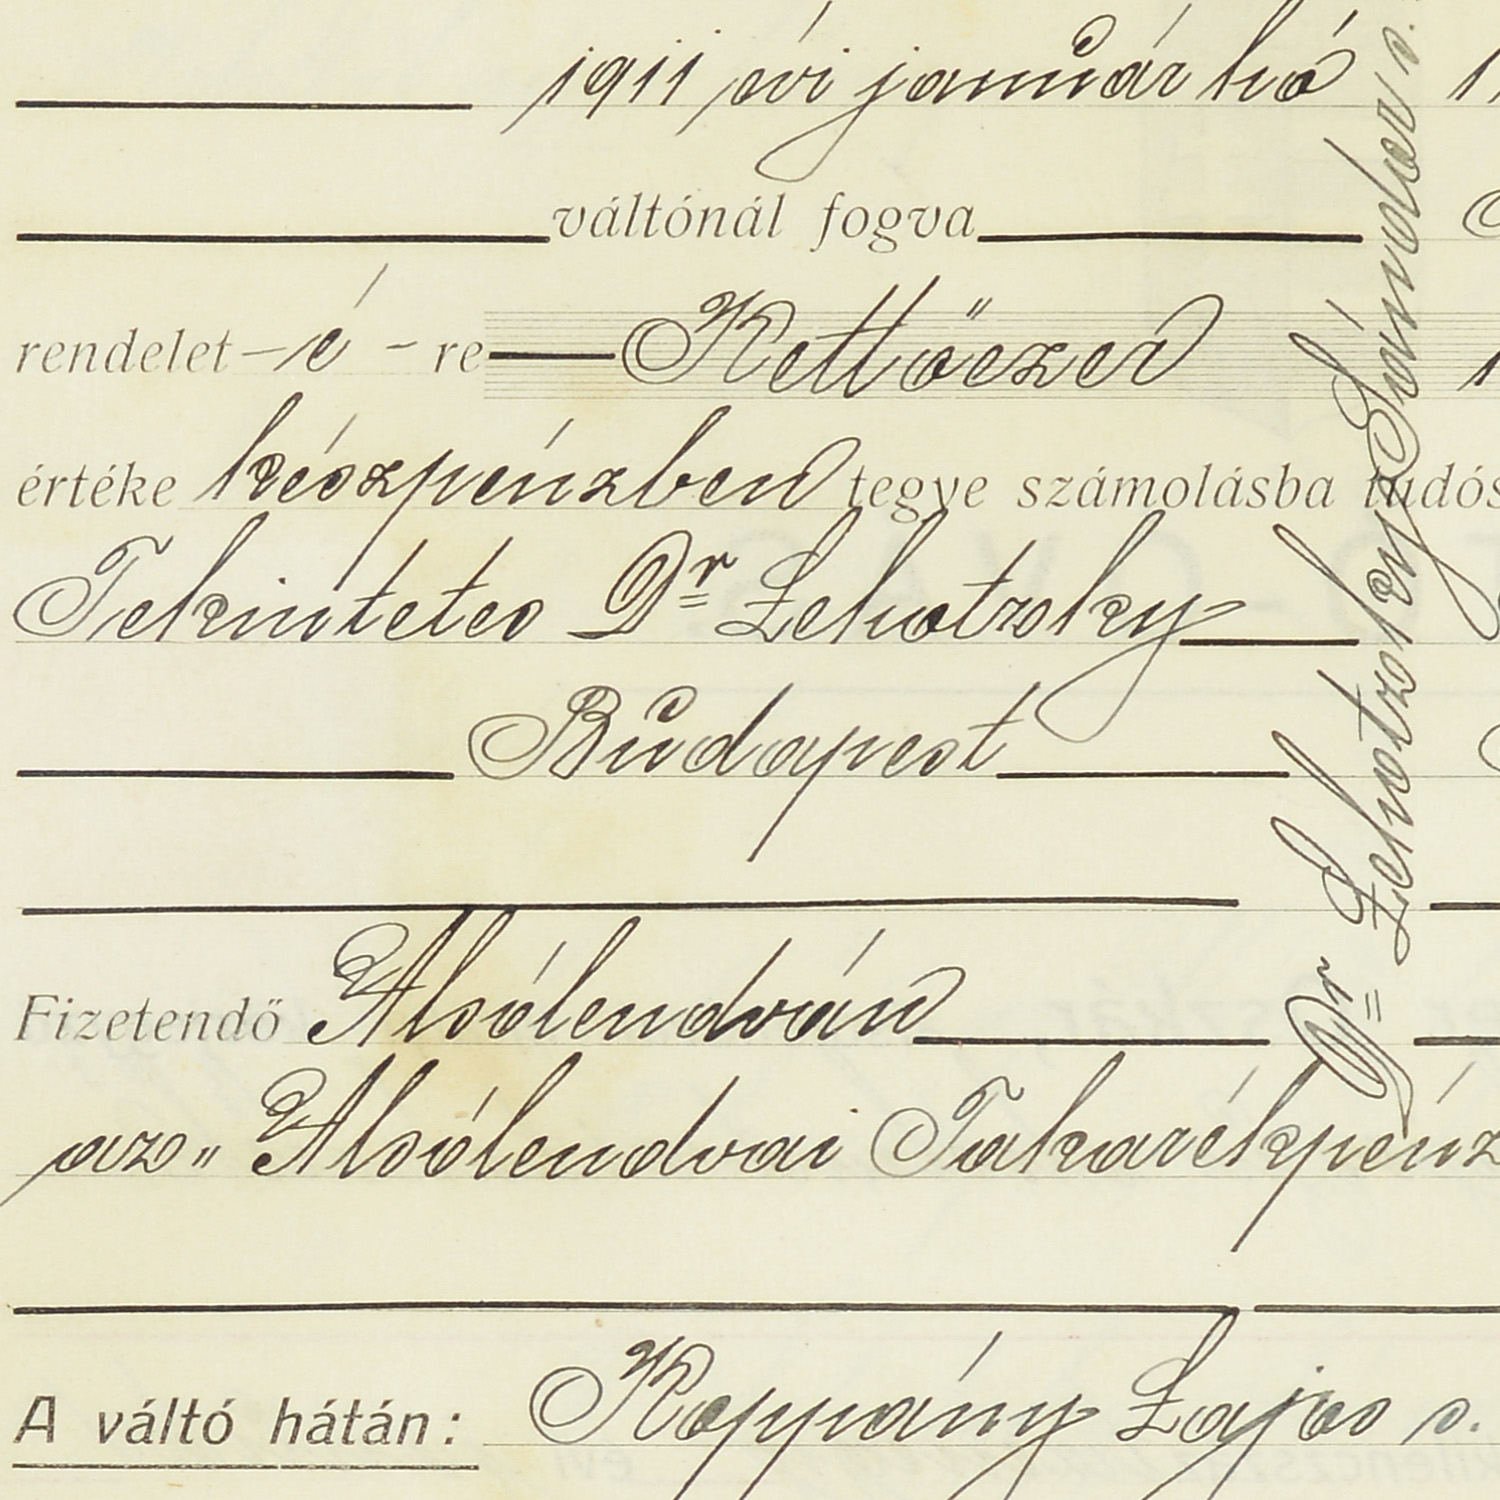 1911 évi január hó
váltónál fogva
rendelet-é-re Kettőezer
értéke készpénzben tegye számolásba tudós
Tekintetes Dr Lehotzky
Budapest
Fizetendő Alsólendván
az „Alsólendvai Takarékpénz
A váltó hátán: Koppány Lajos s.
Dr Lehotzky Sándor s.